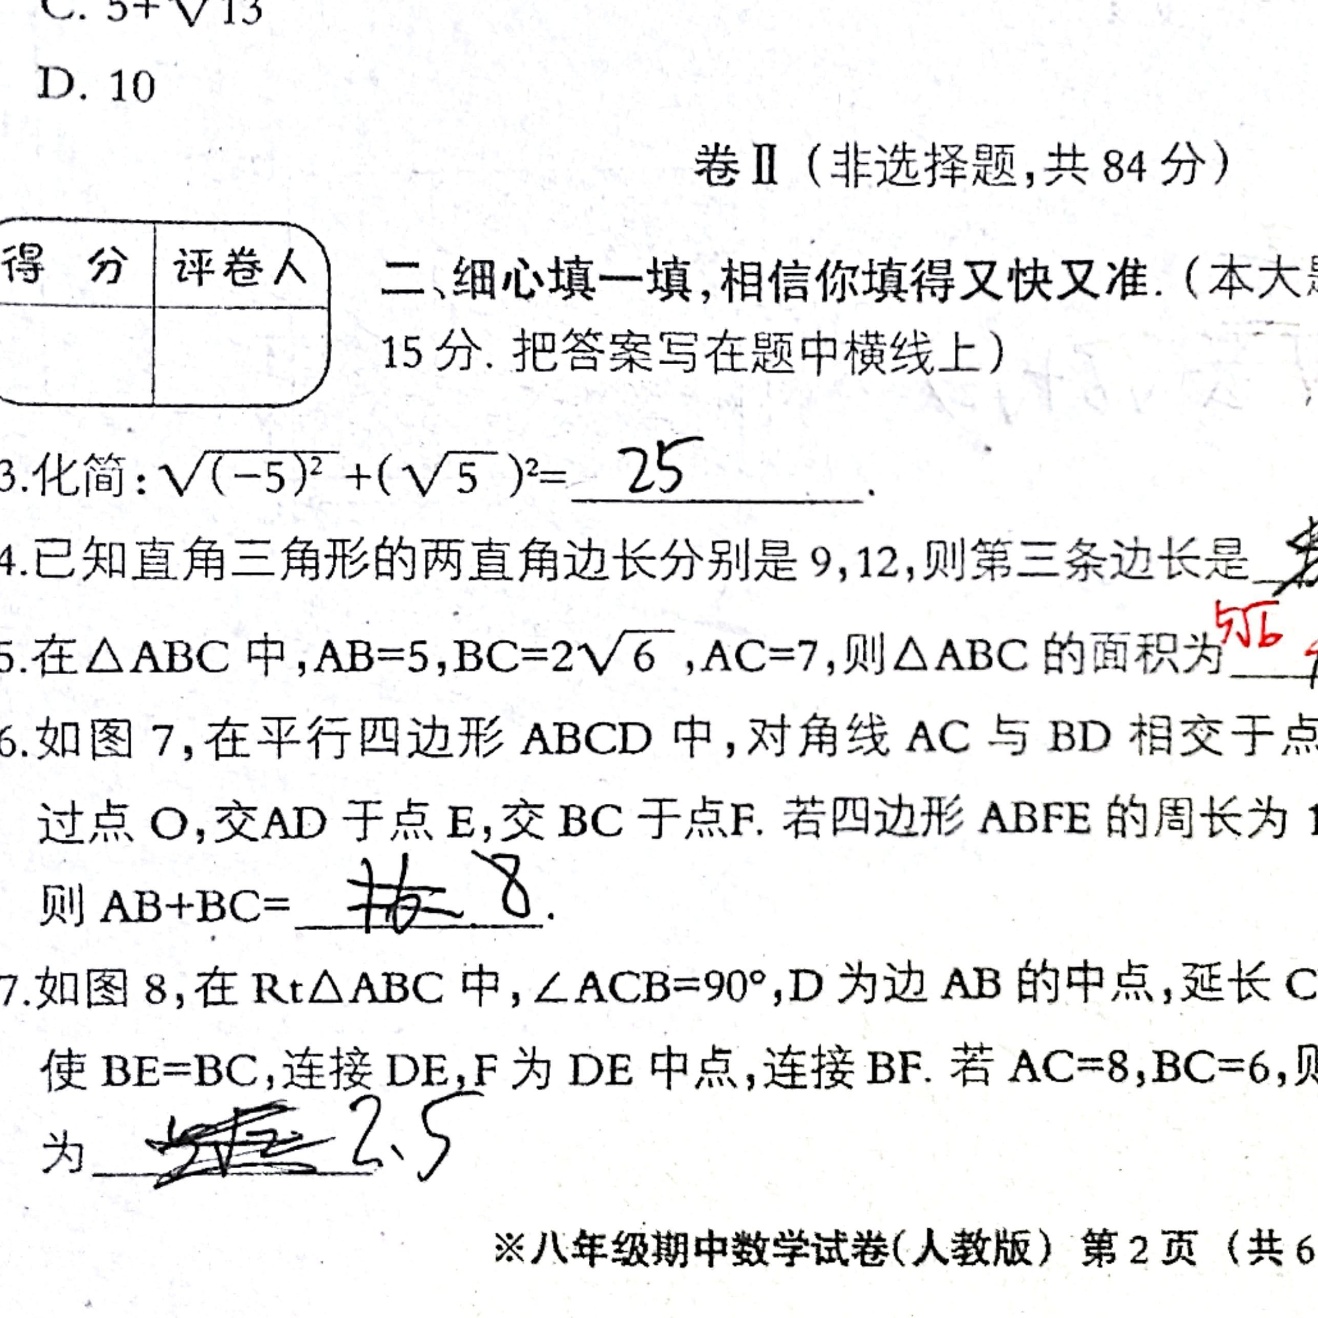 C. 5+√13
D. 10
卷Ⅱ（非选择题,共 84 分）
得 分 评卷人
二、细心填一填,相信你填得又快又准.（本大
15 分. 把答案写在题中横线上）
3.化简:√(-5)² +(√5 )²= 25 .
4.已知直角三角形的两直角边长分别是 9,12,则第三条边长是
5√6
5.在△ABC 中,AB=5,BC=2√6 ,AC=7,则△ABC 的面积为
6.如图 7,在平行四边形 ABCD 中,对角线 AC 与 BD 相交于点
过点 O,交AD 于点 E,交 BC 于点F. 若四边形 ABFE 的周长为 1
则 AB+BC= 8 .
7.如图 8,在 Rt△ABC 中,∠ACB=90°,D 为边 AB 的中点,延长 C
使 BE=BC,连接 DE,F 为 DE 中点,连接 BF. 若 AC=8,BC=6,则
为 2.5
※八年级期中数学试卷(人教版) 第 2 页 (共 6